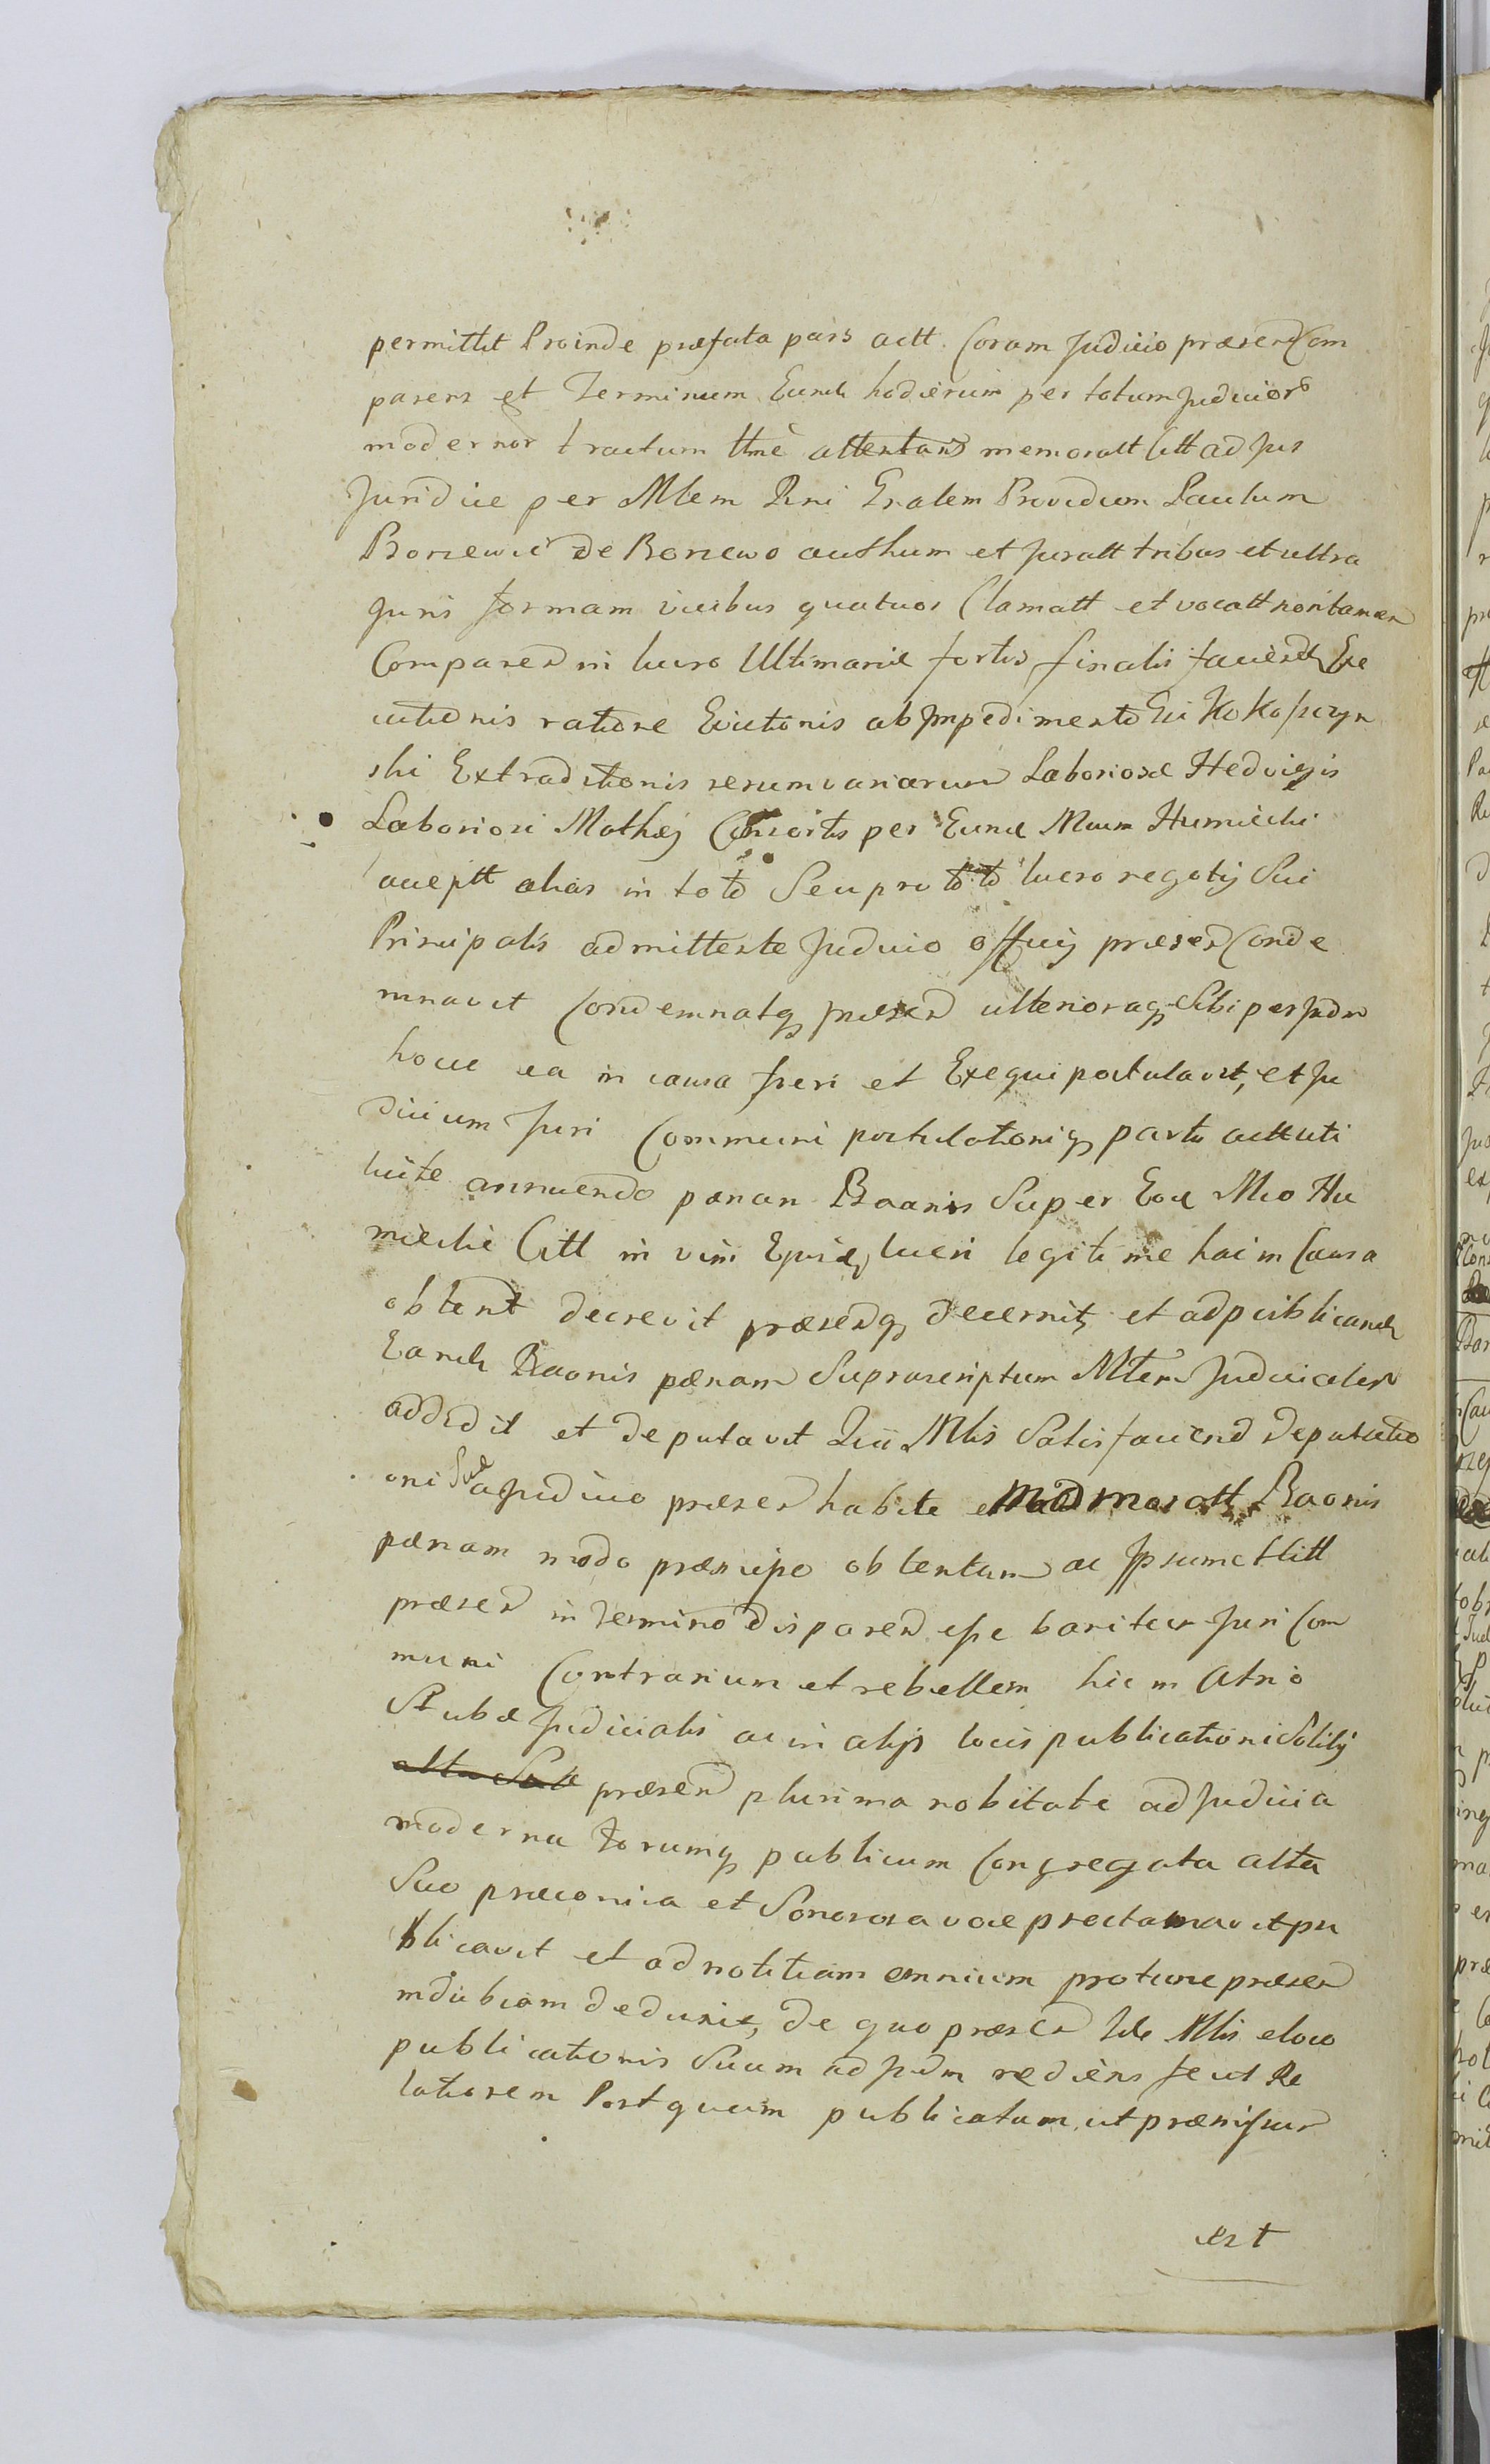 permittit Proinde præfata pars actt. Coram Judicio præsen Com
parens et Terminum Eund hodiernum per totum Judicior
modernor tractum ttmè attentans memoratt Citt ad Jus
Juridice per Mlem Rni Gralem Providum Paulum
de Borzewo authum et Juratt tribus et ultra
Juris formam vicibus quatuor Clamatt et vocatt non tamen
Comparen in lucro Ultimariæ fortis finalis faciend Exe
cutionis ratione Evictionis ab Impedimento Gsi Kokoszczyn
ski Extraditionis rerum variarum Laboriosæ Hedvigis
Laboriosi Mathæj Consortis per Eund Mcum Humiecki
accept alias in toto Seu pro toto lucro negotij Sui
Principalis admittente Judicio officij præsen Conde
mnavit Condemnatq præsen ulterioraq Sibi per Judm
hocce ea in causa fieri et Exequi postulavit, et Ju
dicium Juri Communi postulationiq partis actt uti
licite annuendo pœnam Baanis Super Eod Mco Hu
miecki Citt in vim lucri legitime hac in Causa
obtent decrevit præsenq decernit, et ad publicand
Eand Baonis pœnam Suprascriptum Mtem Judicialem
addidit et deputavit Qui Mlis Satisfaciend deputatio
oni Suæ a Judicio præsen habitæ memoratt Baonis
pœnam modo præmisso obtentam ac Ipsum Citt
præsen in Termino disparen esse banitum Juri Com
muni Contrarium et rebellem hic in Atrio
Stubæ Judicialis ac in alijs locis publicationi Solitis
alta Sua præsen plurima nobitate ad Judicia
moderna forumq publicum Congregata alta
Sua præconica et Sonorosa voce proclamavit pu
blicavit et ad notitiam omnium protunc præsen
indubiam deduxit, de quo præsen Ide Mlis e loco
publicationis Suum ad Judm rediens fecit Re
lationem Postquam publicatam ut præmissum
est